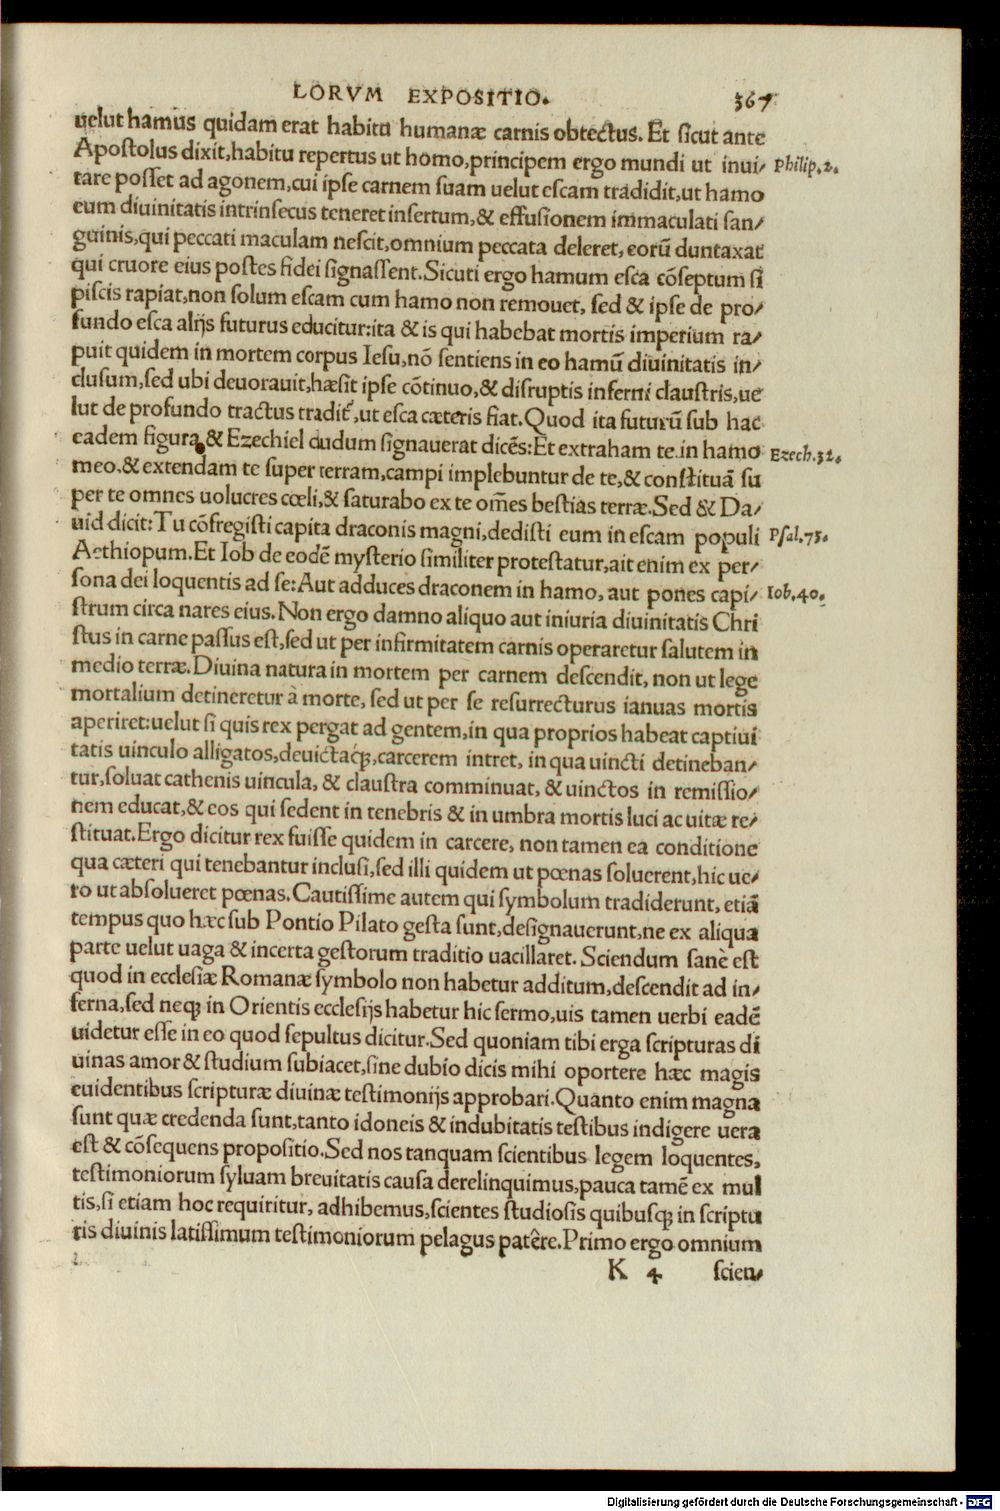 LORVM EXPOSITIO. 367
uelut hamus quidam erat habitu humanæ carnis obtectus. Et sicut ante
Apostolus dixit,habitu repertus ut homo,principem ergo mundi ut inui/ Philip.2.
tare posset ad agonem,cui ipse carnem suam uelut escam tradidit,ut hamo
eum diuinitatis intrinsecus teneret insertum,& effusionem immaculati san/
guinis,qui peccati maculam nescit,omnium peccata deleret, eorū duntaxat
qui cruore eius postes fidei signassent.Sicuti ergo hamum esca cōseptum si
piscis rapiat,non solum escam cum hamo non remouet, sed & ipse de pro/
fundo esca alijs futurus educitur:ita & is qui habebat mortis imperium ra/
puit quidem in mortem corpus Iesu,nō sentiens in eo hamū diuinitatis in/
clusum,sed ubi deuorauit,hæsit ipse cōtinuo,& disruptis inferni claustris,ue
lut de profundo tractus tradit̄,ut esca cæteris fiat.Quod ita futurū sub hac
eadem figura & Ezechiel dudum signauerat dicēs:Et extraham te in hamo Ezech.32.
meo.& extendam te super terram,campi implebuntur de te,& constituā su
per te omnes uolucres cœli,& saturabo ex te om̄es bestias terræ.Sed & Da/
uid dicit:Tu cōfregisti capita draconis magni,dedisti eum in escam populi Psal.73.
Aethiopum.Et Iob de eodē mysterio similiter protestatur,ait enim ex per/
sona dei loquentis ad se:Aut adduces draconem in hamo, aut pones capi/ Iob.40.
strum circa nares eius.Non ergo damno aliquo aut iniuria diuinitatis Chri
stus in carne passus est,sed ut per infirmitatem carnis operaretur salutem in
medio terræ.Diuina natura in mortem per carnem descendit, non ut lege
mortalium detineretur à morte, sed ut per se resurrecturus ianuas mortis
aperiret:uelut si quis rex pergat ad gentem,in qua proprios habeat captiui
tatis uinculo alligatos,deuictaq́;,carcerem intret, in qua uincti detineban/
tur,soluat cathenis uincula, & claustra comminuat, & uinctos in remissio/
nem educat,& eos qui sedent in tenebris & in umbra mortis luci ac uitæ re/
stituat.Ergo dicitur rex fuisse quidem in carcere, non tamen ea conditione
qua cæteri qui tenebantur inclusi,sed illi quidem ut pœnas soluerent,hic ue/
ro ut absolueret pœnas.Cautissime autem qui symbolum tradiderunt, etiā
tempus quo hæc sub Pontio Pilato gesta sunt,designauerunt,ne ex aliqua
parte uelut uaga & incerta gestorum traditio uacillaret. Sciendum sanè est
quod in ecclesiæ Romanæ symbolo non habetur additum,descendit ad in/
ferna,sed neq; in Orientis ecclesijs habetur hic sermo,uis tamen uerbi eadē
uidetur esse in eo quod sepultus dicitur.Sed quoniam tibi erga scripturas di
uinas amor & studium subiacet,sine dubio dicis mihi oportere hæc magis
euidentibus scripturæ diuinæ testimonijs approbari.Quanto enim magna
sunt quæ credenda sunt,tanto idoneis & indubitatis testibus indigere uera
est & cōsequens propositio.Sed nos tanquam scientibus legem loquentes,
testimoniorum syluam breuitatis causa derelinquimus,pauca tamē ex mul
tis,si etiam hoc requiritur, adhibemus,scientes studiosis quibusq; in scriptu
ris diuinis latissimum testimoniorum pelagus patêre.Primo ergo omnium
K 4 scien/
Digitalisierung gefördert durch die Deutsche Forschungsgemeinschaft - DFG